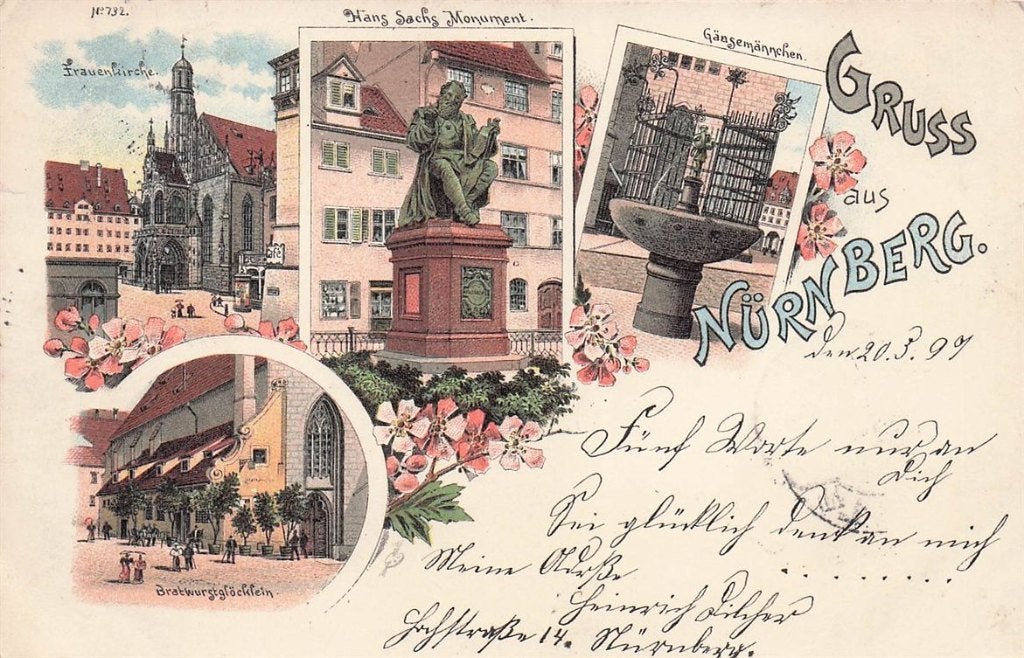 No 732.
Hans Sachs Monument.
Gänsemännchen.
Frauenkirche.
GRUSS
aus
NÜRNBERG.
den 20. 3. 97
Fünf Worte nur an
Dich
Sei glücklich denk an mich
. . . . . . . . .
Meine Adreße
Heinrich
Hochstraße 14. Nürnberg.
Bratwurstglöcklein.